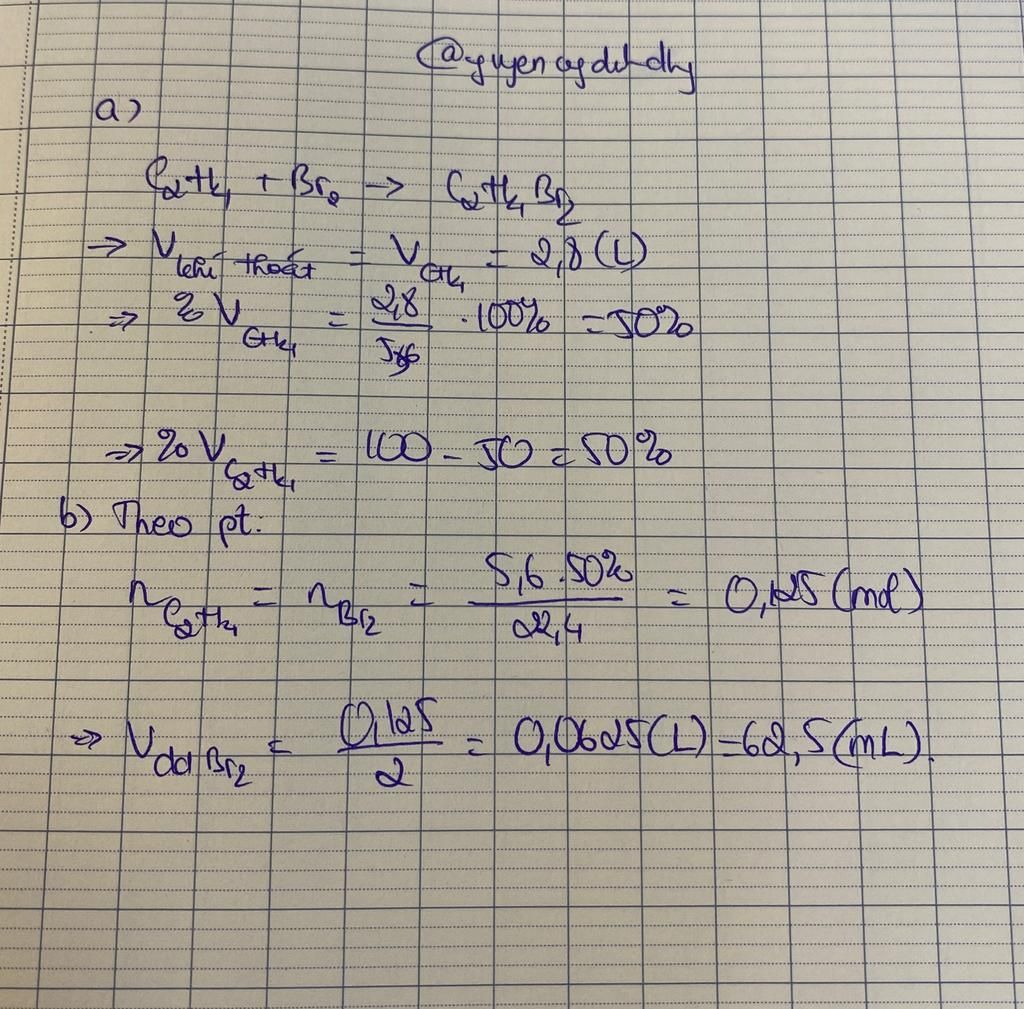 a)
C₂H₄ + Br₂ → C₂H₄Br₂
→ V khí thoát = V CH₄ = 2,8 (L)
⇒ % V CH₄ = 2,8 / 5,6 . 100% = 50%
⇒ % V C₂H₄ = 100 - 50 = 50%
b) Theo pt:
n C₂H₄ = n Br₂ = 5,6 . 50% / 22,4 = 0,125 (mol)
⇒ V dd Br₂ = 0,125 / 2 = 0,0625 (L) = 62,5 (mL).